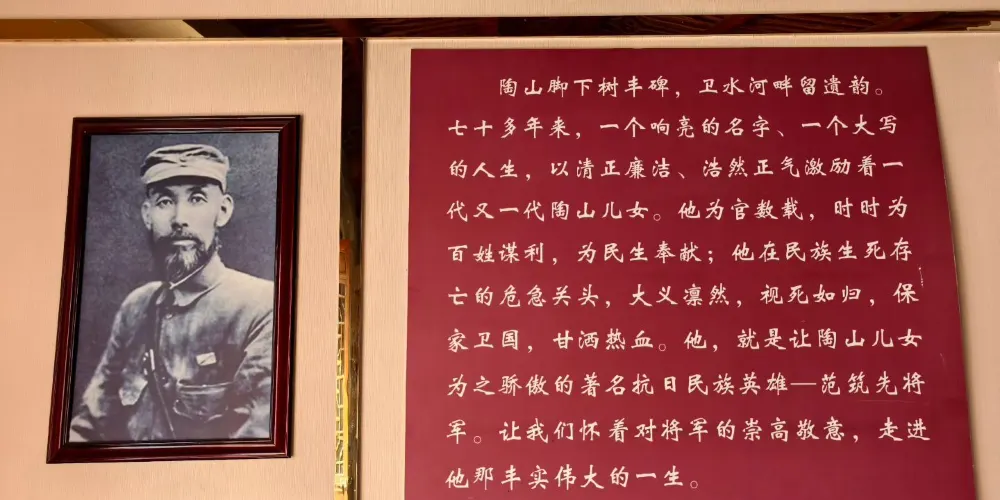 陶山脚下树丰碑，卫水河畔留遗韵。
七十多年来，一个响亮的名字、一个大写
的人生，以清正廉洁、浩然正气激励着一
代又一代陶山儿女。他为官数载，时时为
百姓谋利，为民生奉献；他在民族生死存
亡的危急关头，大义凛然，视死如归，保
家卫国，甘洒热血。他，就是让陶山儿女
为之骄傲的著名抗日民族英雄—范筑先将
军。让我们怀着对将军的崇高敬意，走进
他那丰实伟大的一生。